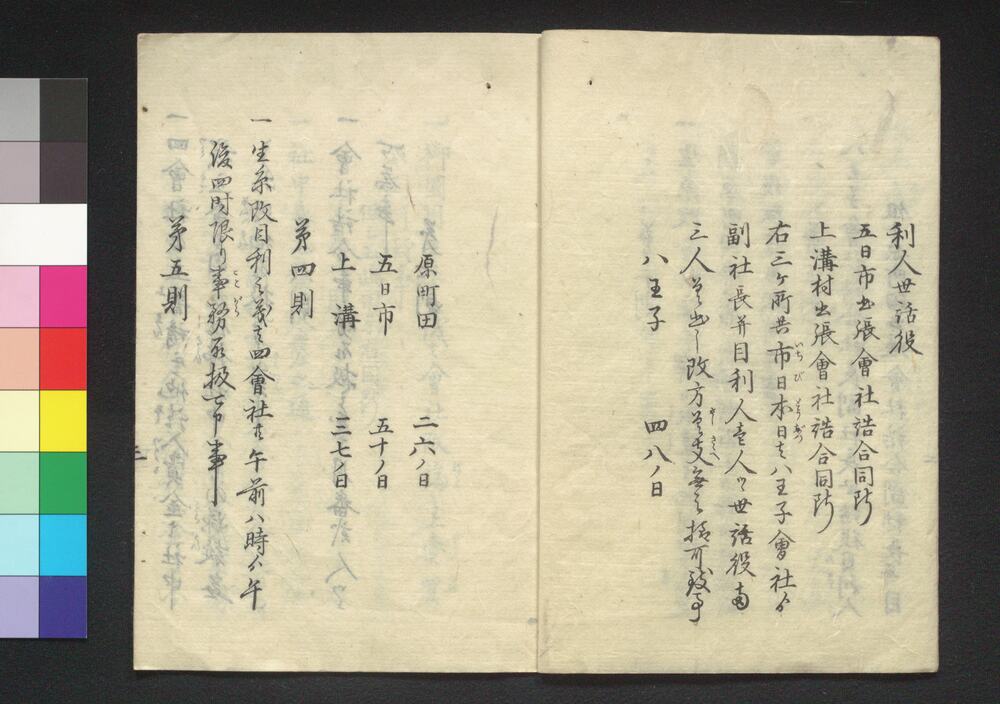 利人世話役
五日市出張會社詰合同断
上溝村出張會社詰合同断
右三ケ所共市日本日者八王子會社ゟ
副社長并目利人壱人ツヽ世話役両
三人差出し改方差支無之様可致事
八王子 四八ノ日
原町田 二六ノ日
五日市 五十ノ日
上溝 三七ノ日
第四則
一生糸改目利之義者四會社共午前八時ゟ午
後四時限り事務取扱可申事
第五則